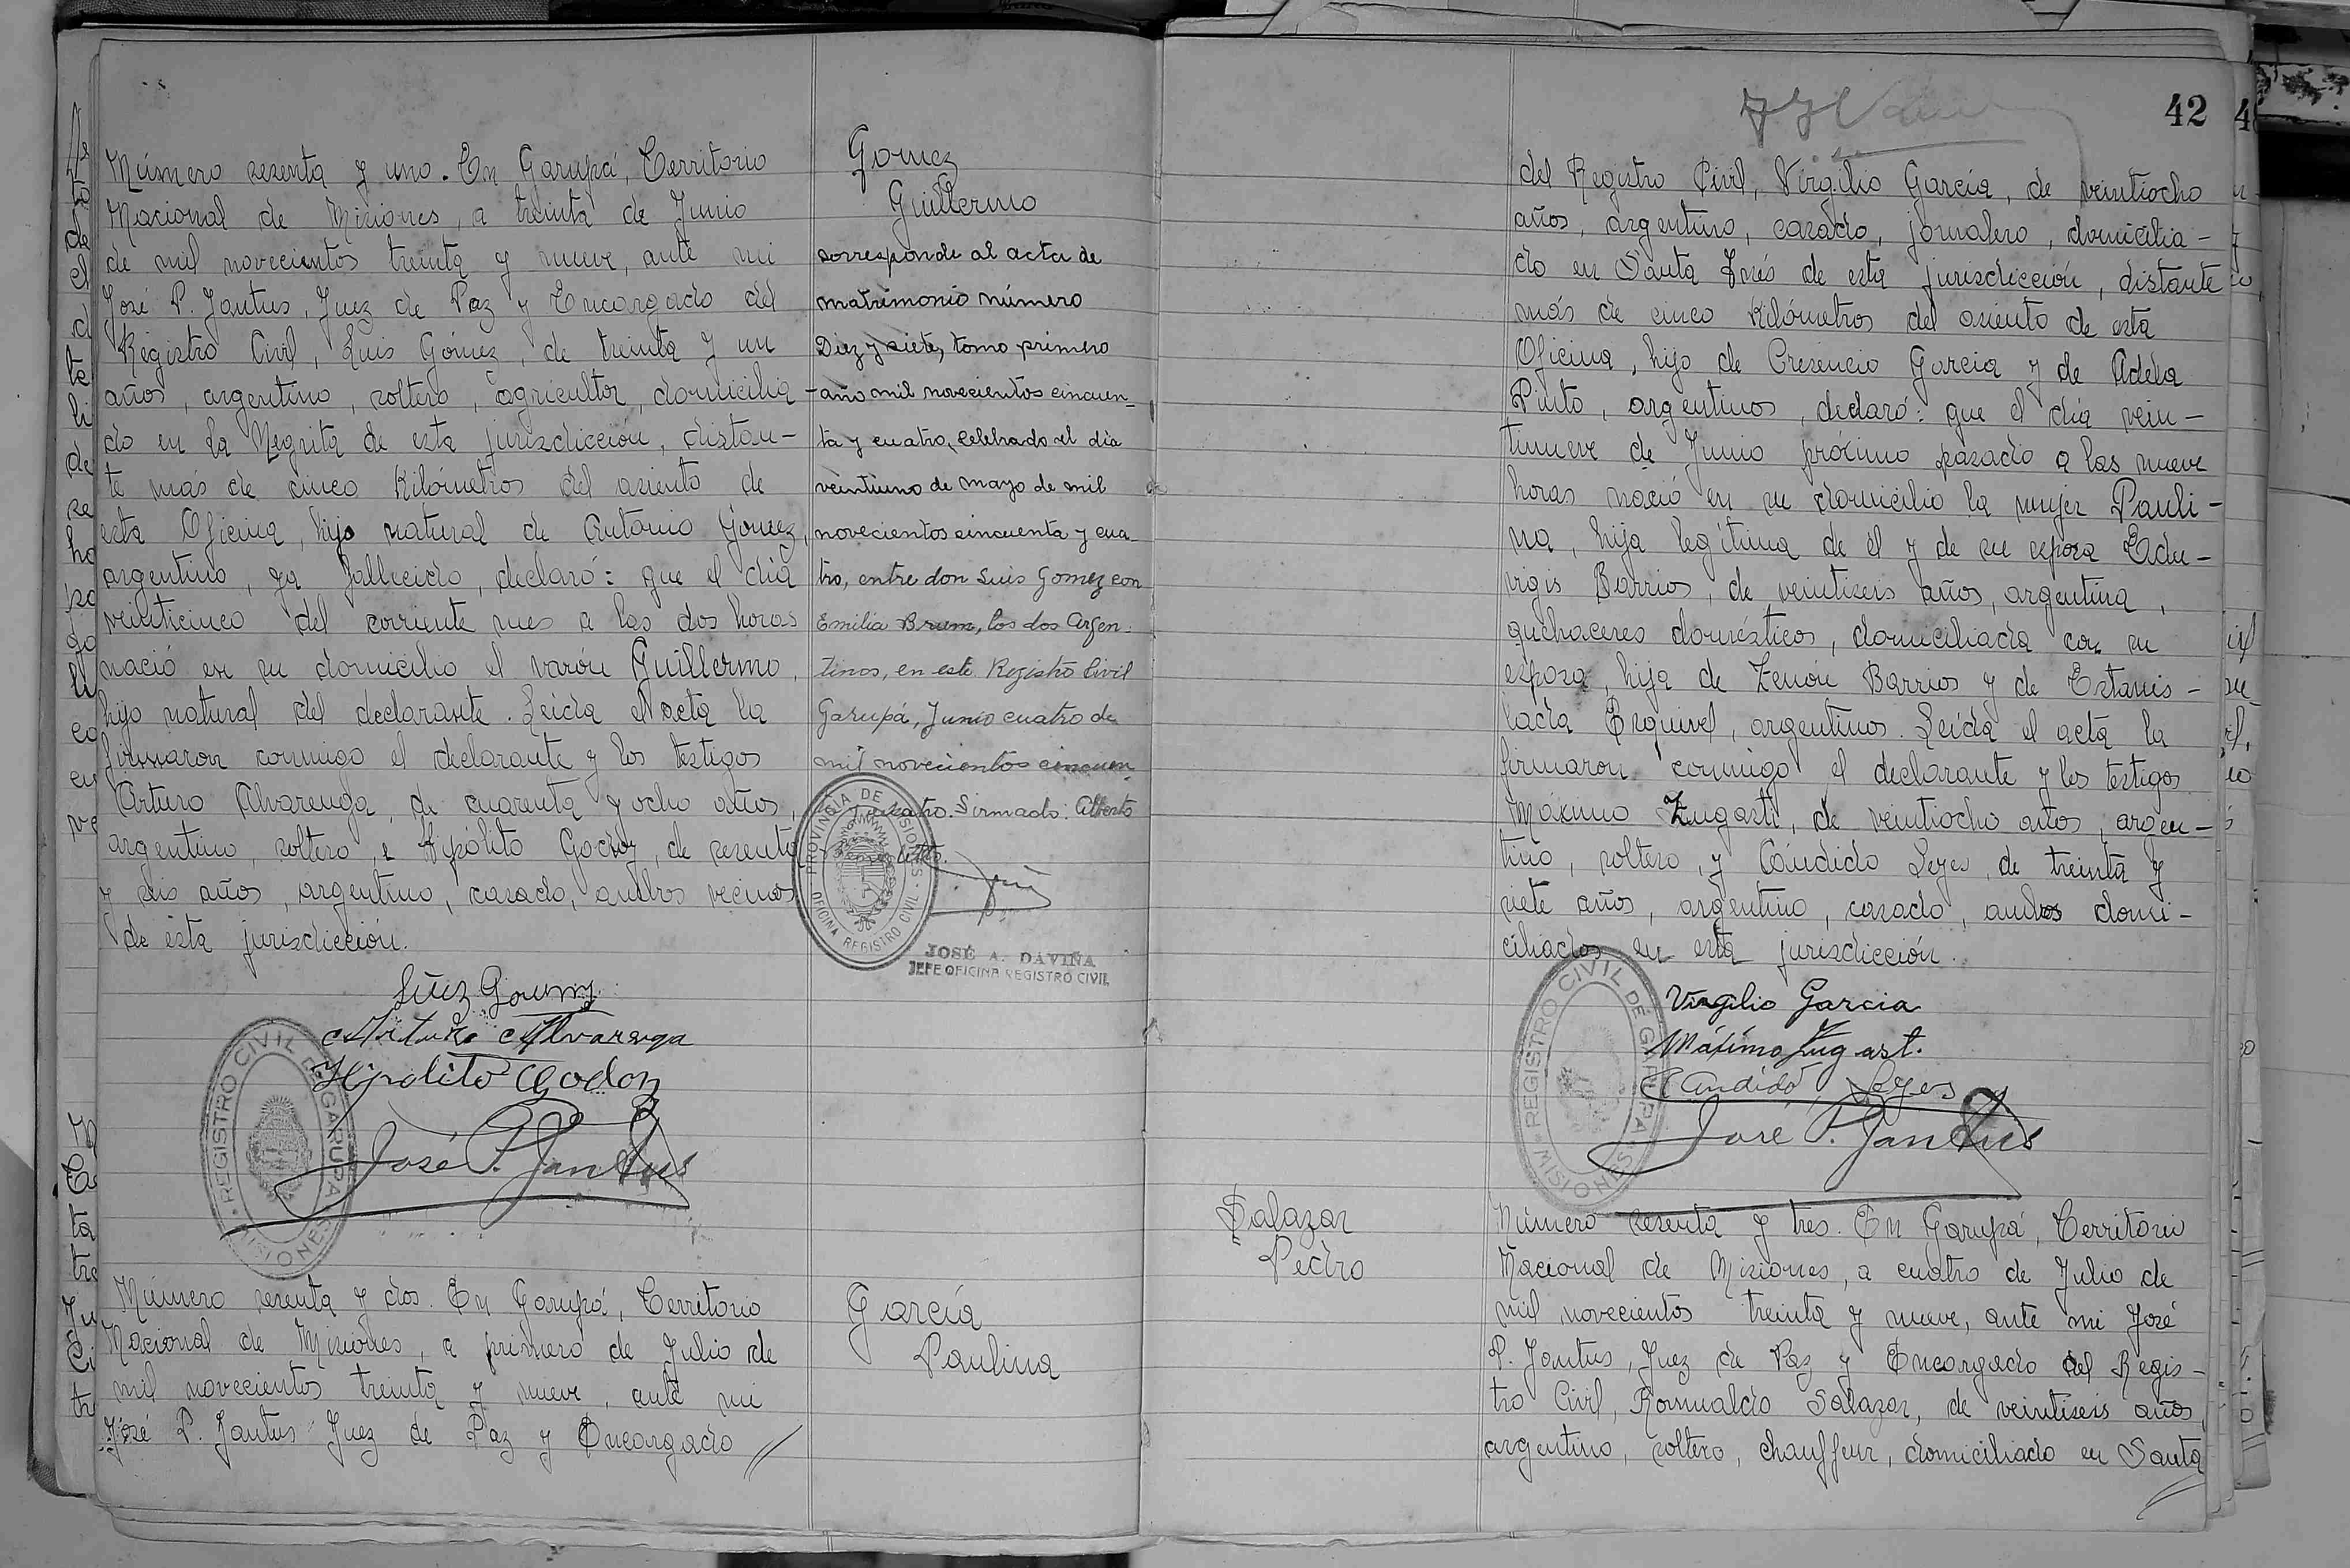 Número sesenta y uno. En Garupá, Territorio
Nacional de Misiones, a treinta de Junio
de mil novecientos treinta y nueve, ante mi
José P. Jantus, Juez de Paz y Encargado del
Registro Civil, Luis Gómez, de treinta y un
años, argentino, soltero, agricultor, domicilia-
do en la Negrita de esta jurisdicción, distan-
te más de cinco kilómetros del asiento de
esta Oficina, hijo natural de Antonio Gómez,
argentino, ya fallecido, declaró: que el día
veinticinco del corriente mes a las dos horas
nació en su domicilio el varón Guillermo,
hijo natural del declarante. Leída el acta la
firmaron conmigo el declarante y los testigos
Arturo Alvarenga, de cuarenta y ocho años,
argentino, soltero, e Hipólito Godoy, de sesenta
y seis años, argentino, casado, ambos vecinos
de esta jurisdicción.
Arturo Alvarenga
Hipolito Godoy
José P. Jantus
REGISTRO CIVIL DE GARUPA
MISIONES
Gomez
Guillermo
corresponde al acta de
matrimonio número
Diez y siete, tomo primero
año mil novecientos cincuen-
ta y cuatro, celebrado el día
veintiuno de mayo de mil
novecientos cincuenta y cua-
tro, entre don Luis Gomez con
Emilia Brum, los dos Argen-
tinos, en este Registro Civil
Garupá, Junio cuatro de
mil novecientos cincuen
y cuatro. Firmado: Alberto
PROVINCIA DE MISIONES
OFICINA REGISTRO CIVIL
JOSÉ A. DAVIÑA
JEFE OFICINA REGISTRO CIVIL
Número sesenta y dos. En Garupá, Territorio
Nacional de Misiones, a primero de Julio de
mil novecientos treinta y nueve, ante mi
José P. Jantus Juez de Paz y Encargado //
García
Paulina
42
del Registro Civil, Virgilio García, de veintiocho
años, argentino, casado, jornalero, domicilia-
do en Santa Inés de esta jurisdicción, distante
más de cinco kilómetros del asiento de esta
Oficina, hijo de Cresencio García y de Adela
Pinto, argentinos, declaró: que el día vein-
tinueve de Junio próximo pasado a las nueve
horas nació en su domicilio la mujer Pauli-
na, hija legítima de él y de su esposa Edu-
vigis Barrios, de veintiseis años, argentina,
quehaceres domésticos, domiciliada con su
esposo, hija de Zenón Barrios y de Estanis-
lada Esquivel, argentinos. Leída el acta la
firmaron conmigo el declarante y los testigos
Máximo Zugasti, de veintiocho años, argen-
tino, soltero, y Cándido Leyes, de treinta y
siete años, argentino, casado, ambos domi-
ciliados en esta jurisdicción.
Virgilio Garcia
Máximo Zugasti
Candido Leyes
José P. Jantus
REGISTRO CIVIL DE GARUPA
MISIONES
Salazar
Pedro
Número sesenta y tres. En Garupá, Territorio
Nacional de Misiones, a cuatro de Julio de
mil novecientos treinta y nueve, ante mi José
P. Jantus, Juez de Paz y Encargado del Regis-
tro Civil, Romualdo Salazar, de veintiseis años,
argentino, soltero, chauffeur, domiciliado en Santa //